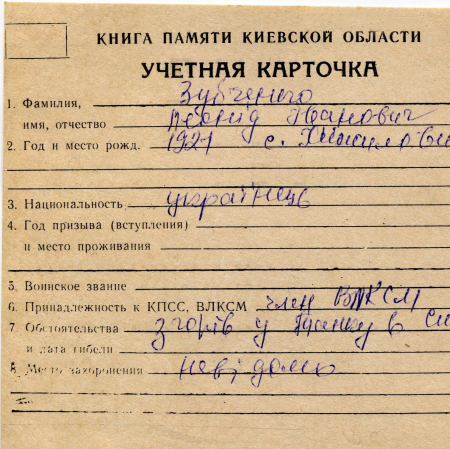 КНИГА ПАМЯТИ КИЕВСКОЙ ОБЛАСТИ
УЧЕТНАЯ КАРТОЧКА
1. Фамилия, Зубченко
имя, отчество Леонид Иванович
2. Год и место рожд. 1921 с.
3. Национальность українець
4. Год призыва (вступления)
и место проживания
5. Воинское звание
6. Принадлежность к КПСС, ВЛКСМ член ВЛКСМ
7. Обстоятельства згорів у танку в
и дата гибели
8. Место захоронения невідомо